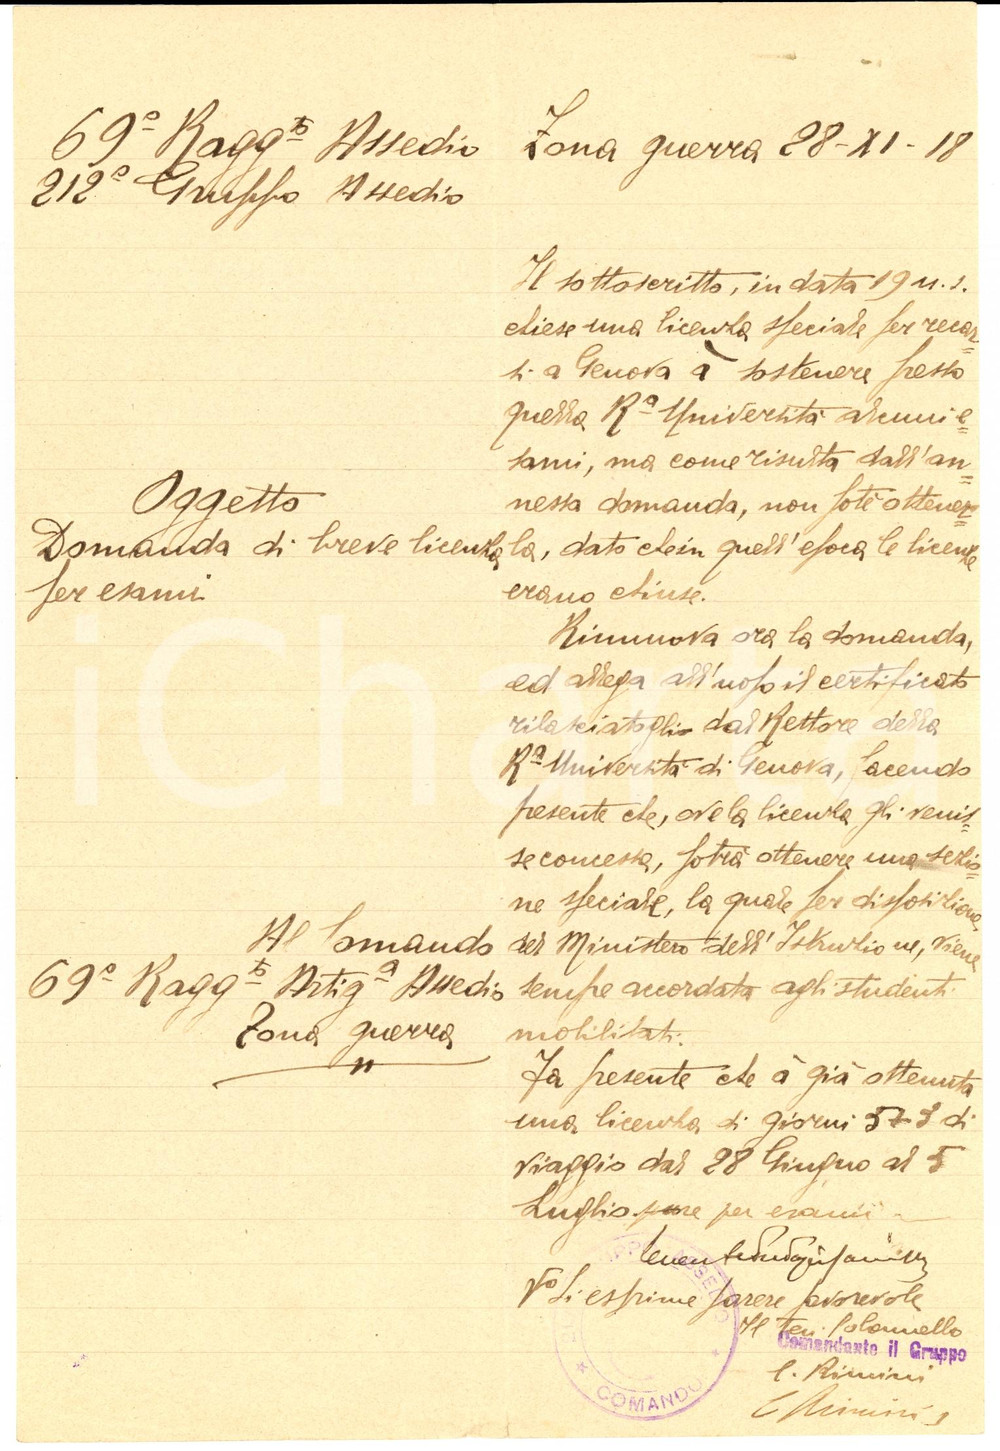 69º Raggto Assedio
212º Gruppo Assedio
Zona guerra 28-XI-18
Oggetto
Domanda di breve licenza
per esami
Al Comando
69º Raggto Artigª Assedio
Zona guerra
Il sottoscritto, in data 19 u.s.
chiese una licenza speciale per recar=
si a Genova à sostenere presso
quella Rª Università alcuni e=
sami, ma come risulta dall'an=
nessa domanda, non potè ottener=
la, dato che in quell'epoca le licenze
erano chiuse.
Rinnova ora la domanda,
ed allega all'uopo il certificato
rilasciatogli dal Rettore della
Rª Università di Genova, facendo
presente che, ove la licenza gli venis=
se concessa, potrà ottenere una sezio=
ne speciale, la quale per disposizione
del Ministero dell'Istruzione, viene
sempre accordata agli studenti
mobilitati.
Fa presente che à già ottenuta
una licenza di giorni 5+3 di
viaggio dal 28 Giugno al 5
Luglio pure per esami
Vº Si esprime parere favorevole
Il Ten. Colonnello
Comandante il Gruppo
C. Rimini
C Rimini
COMANDO
iCharta